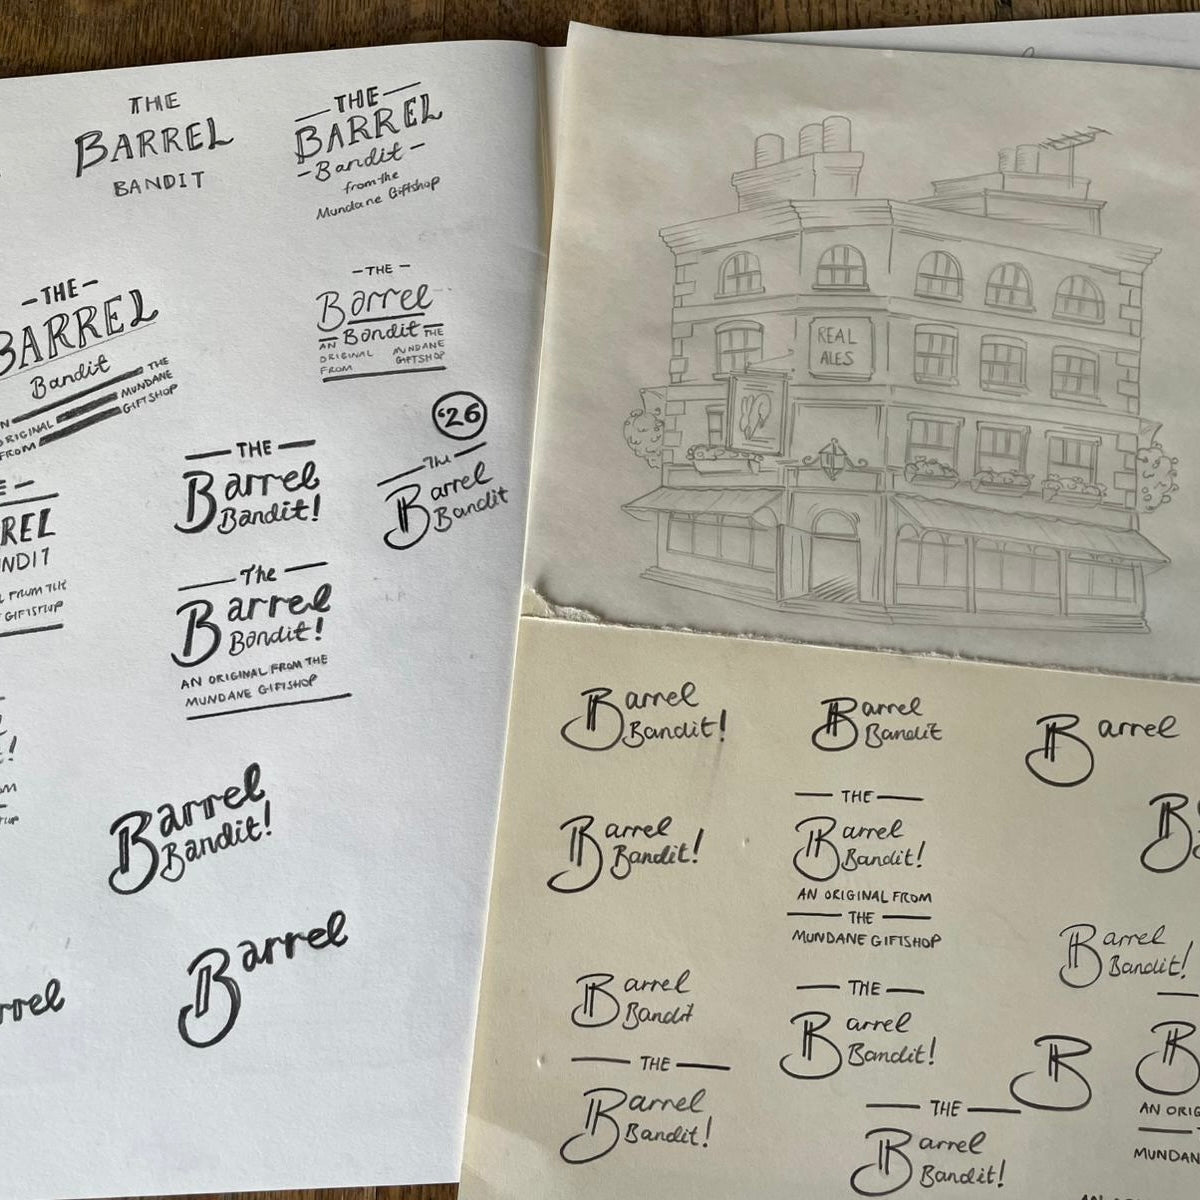 THE
BARREL
BANDIT
THE
BARREL
-Bandit-
from the
Mundane Giftshop
-THE-
BARREL
Bandit
THE
MUNDANE
GIFTSHOP
ORIGINAL
FROM
-THE-
Barrel
Bandit
AN
ORIGINAL
FROM
THE
MUNDANE
GIFTSHOP
'26
The
Barrel
Bandit
THE
Barrel
Bandit!
REL
NDIT
FROM THE
GIFTSHOP
The
Barrel
Bandit!
AN ORIGINAL FROM THE
MUNDANE GIFTSHOP
Barrel
Bandit!
Barrel
rrel
REAL
ALES
Barrel
Bandit!
Barrel
Bandit
Barrel
Barrel
Bandit!
THE
Barrel
Bandit!
AN ORIGINAL FROM
THE
MUNDANE GIFTSHOP
B
Barrel
Bandit!
Barrel
Bandit
THE
Barrel
Bandit!
B
B
AN ORIG
MUNDAN
THE
Barrel
Bandit!
THE
Barrel
Bandit!